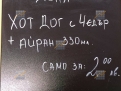 ХОТ ДОГ с ЧЕДЪР
+ АЙРАН 330мл.
САМО ЗА: 2.00 лв.